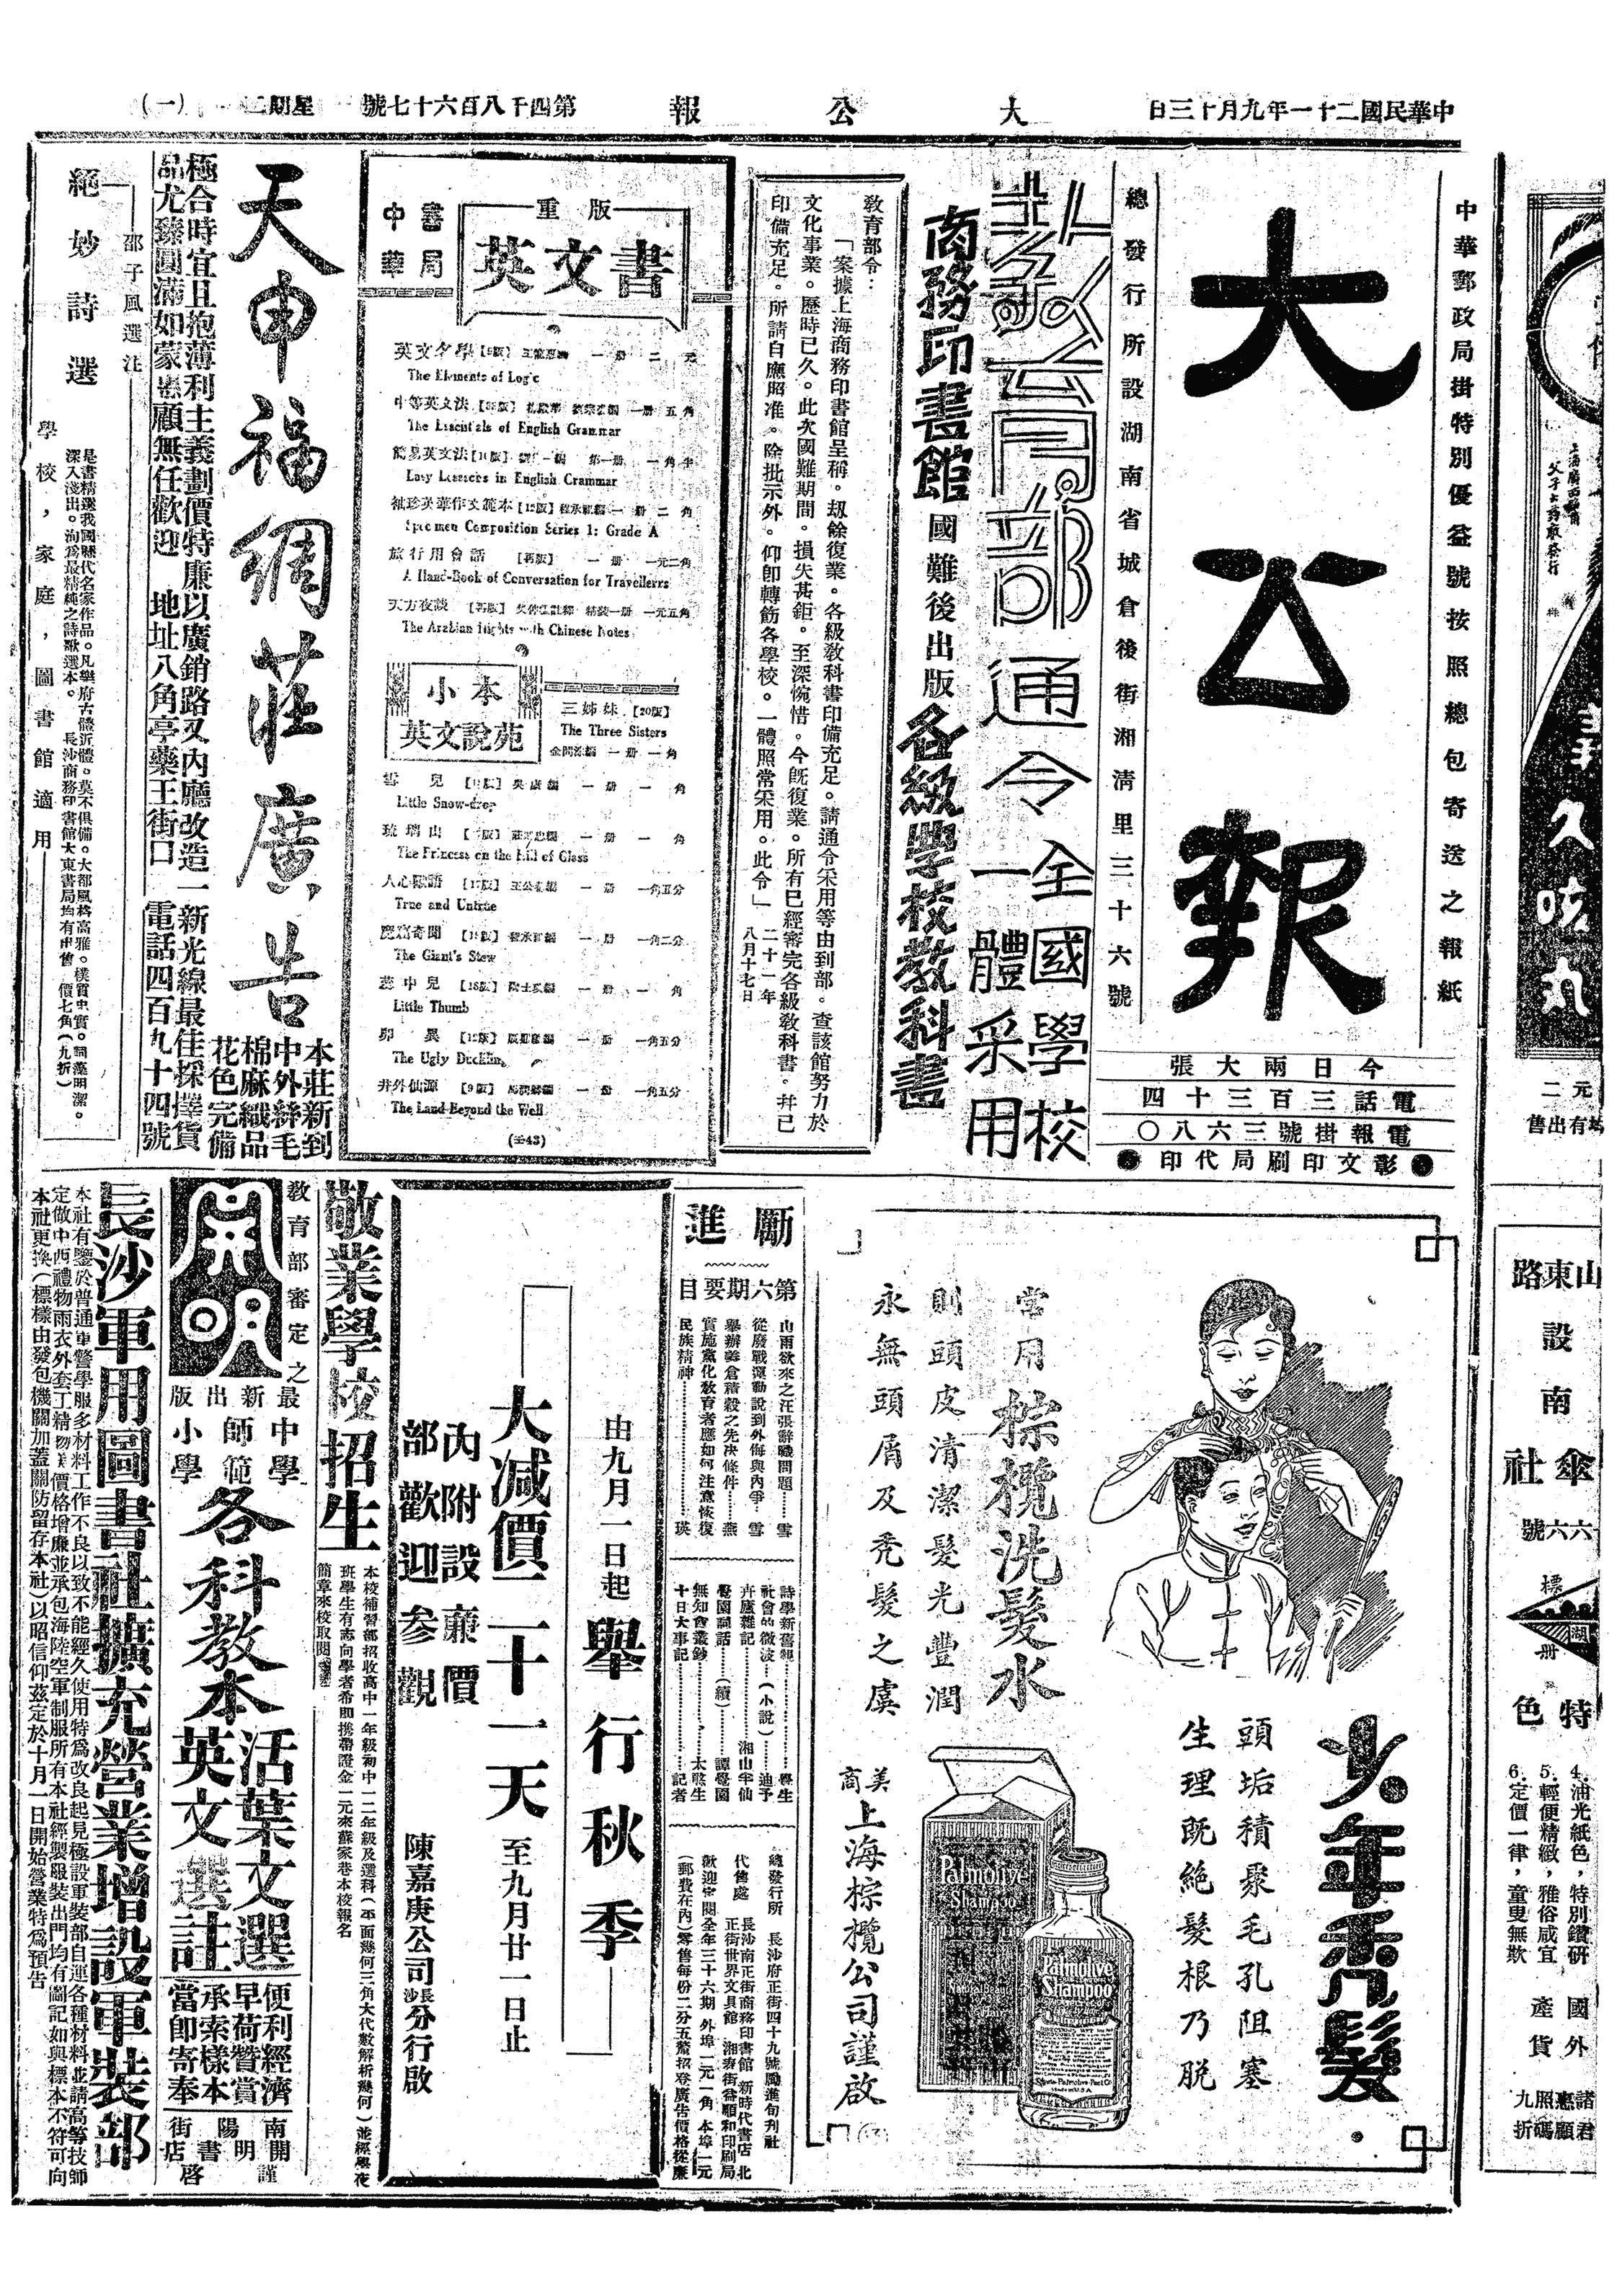 中華民國二十一年九月十三日
大公報
第四千八百六十七號
星期二
（一）
中華郵政局掛特別優益號按照總包寄送之報紙
大公報
總發行所設湖南省城倉後街湘清里三十六號
今日兩大張
電話三百三十四
電報掛號三六八〇
彰文印刷局代印
教育部通令全國學校
一體采用
商務印書館國難後出版各級學校教科書
教育部令：
「案據上海商務印書館呈稱。刼餘復業。各級教科書印備充足。請通令采用等由到部。查該館努力於
文化事業。歷時已久。此次國難期間。損失甚鉅。至深惋惜。今既復業。所有已經審定各級教科書。幷已
印備充足。所請自應照准。除批示外。仰卽轉飭各學校。一體照常采用。此令」
二十一年
八月十七日
中華書局
重版
英文書
英文名學
一册 二元
The Elements of Logic
中等英文法
一册 五角
The Essentials of English Grammar
簡易英文法
第一册 一角半
Easy Lessons in English Grammar
袖珍英華作文範本【12版】
一册 二角
Specimen Composition Series 1: Grade A
旅行用會話【再版】 一册 一元二角
A Hand-Book of Conversation for Travellerrs
天方夜談【再版】
精裝一册 一元五角
The Arabian Nights with Chinese Notes
小本
英文說苑
三姊妹【20版】
The Three Sisters
一册 一角
雪兒
一册 一角
Little Snow-drop
琉璃山
一册 一角
The Princess on the Hill of Glass
一册 一角五分
True and Untrue
一册 一角二分
The Giant's Stew
一册 一角
Little Thumb
卵異
一册 一角五分
The Ugly Duckling
井外仙源【9版】
一册 一角五分
The Land Beyond the Well
天申福綢莊廣告
本莊新到
中外絲毛
棉麻織品
花色完備
極合時宜且抱薄利主義劃價特廉以廣銷路又內廳改造一新光線最佳採擇貨
品尤臻圓滿如蒙惠顧無任歡迎 地址八角亭藥王街口 電話四百九十四號
邵子風選注
絕妙詩選
是書精選我國歷代名家作品。凡樂府古體近體。莫不俱備。大都風格高雅。樸質史實。詞藻明潔。
深入淺出。洵爲最精純之詩歌選本。 長沙商務印書館大東書局均有出售 價七角（九折）
學校，家庭，圖書館適用
少年禿髮
頭垢積聚毛孔阻塞
生理旣絕髮根乃脫
常用棕欖洗髮水
則頭皮清潔髮光豐潤
永無頭屑及禿髮之虞
Palmolive
Shampoo
Palmolive
Shampoo
美商上海棕欖公司謹啟
勵進
第六期要目
山雨欲來之汪張辭職問題……雪
從廢戰運動說到外侮與內爭…雪
舉辦義倉積穀之先决條件……燕
實施黨化教育者應如何注意恢復
民族精神……瑛
詩學新舊經……學生
社會的微波（小說）……迪予
卉廬雜記……湘山半仙
譻園詞話（續）……譚譻園
無知齋叢鈔……太憨生
十日大事記……記者
總發行所 長沙府正街四十九號勵進旬刋社
代售處 長沙南正街商務印書館 新時代書店 北
正街世界文具館 湘春街益順和印刷局
歡迎定閱全年三十六期 外埠一元一角 本埠一元
（郵費在內）零售每份二分五釐招登廣告價格從廉
由九月一日起舉行秋季
大減價二十一天至九月廿一日止
內附設廉價
部歡迎參觀
陳嘉庚公司長沙分行啟
敬業學校招生
本校補習部招收高中一年級初中一二年級及選科（平面幾何三角大代數解析幾何）並經興夜
班學生有志向學者希卽携帶證金一元來蘇家巷本校報名
簡章來校取閱
教育部審定之
開明
最新出版
中學
師範
小學
各科教本
活葉文選
英文選註
便利經濟
早荷贊賞
承索樣本
當卽寄奉
南陽街
開明書店
謹啓
長沙軍用圖書社擴充營業增設軍裝部
本社有鑒於普通軍警學服多材料工作不良以致不能經久使用特爲改良起見極設軍裝部自運各種材料並請高等技師
定做中西禮物雨衣外套工精物美價格增廉並承包海陸空軍制服所有本社經製服裝出門均有圖記如與標本不符可向
本社更換（標樣由發包機關加蓋關防留存本社）以昭信仰茲定於十月一日開始營業特爲預告
久咳丸
上海廣西路
元二
均有出售
山東路
設
南
傘社
六六號
標
湖
册
特色
4. 浦光紙色，特別鑽研
5. 輕便精緻，雅俗咸宜
6. 定價一律，童叟無欺
國外
產貨
諸君
惠顧
照碼
九折